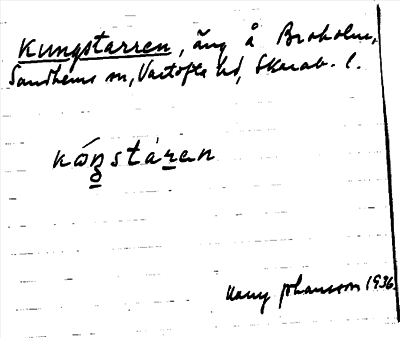 Kungstarren, äng å Broholm,
Sandhems sn, Vartofta hd, Skarab. l.
kóŋstáren
Harry Johansson 1936.